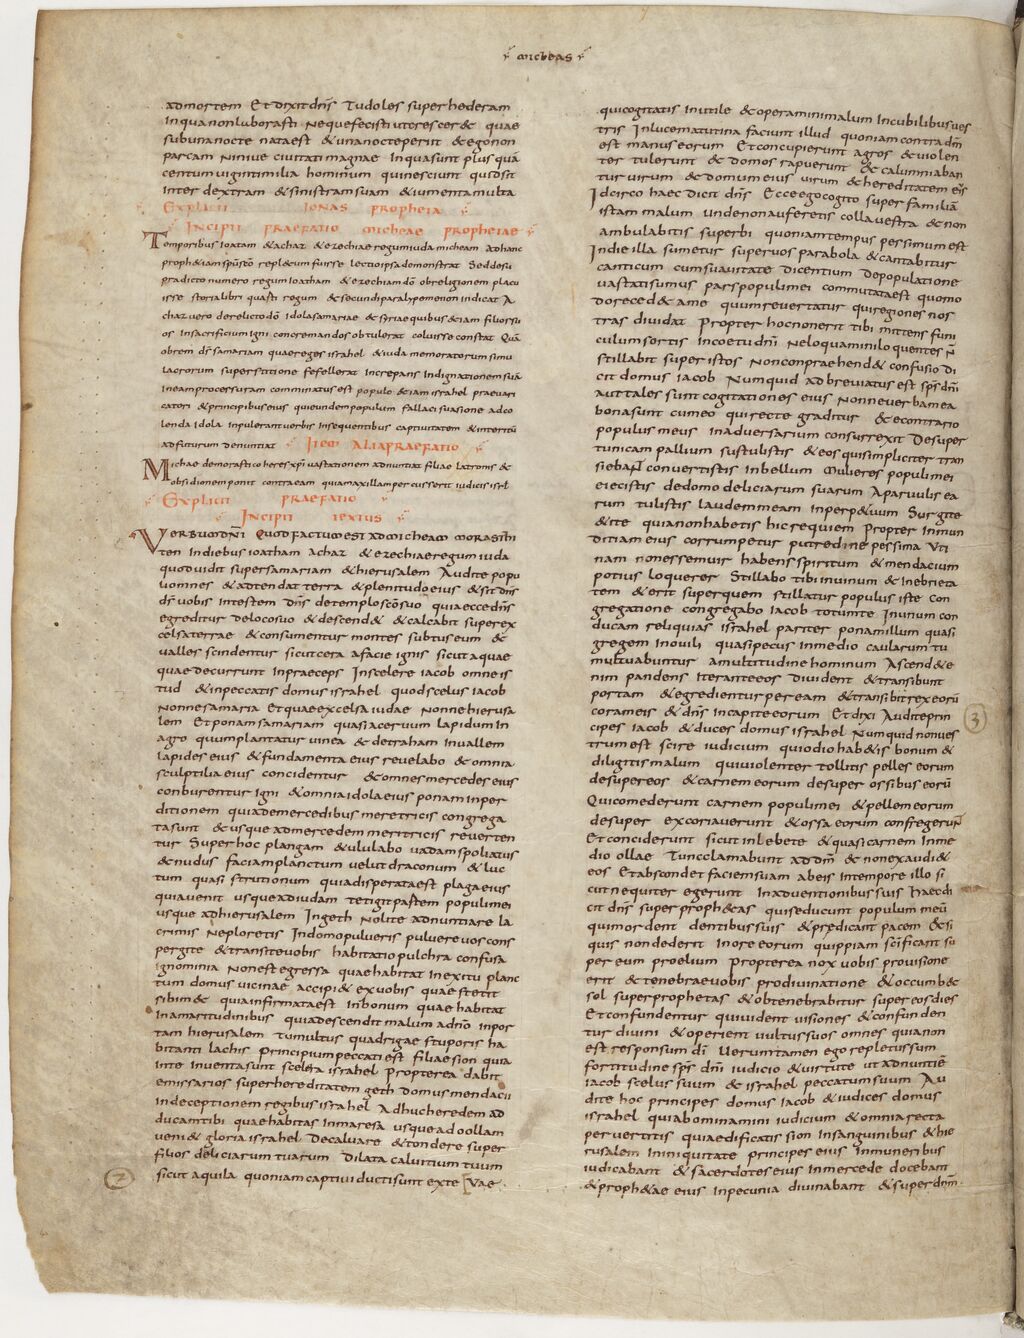 micheas
ad mortem Et dixit dns Tu doles super hederam
In qua non laborasti Neque fecisti ut cresceret quae
sub una nocte nata est & una nocte periit & ego non
parcam Ninive civitati magnae In qua sunt plus quā
centum viginti milia hominum qui nesciunt quid sit
Inter dextram & sinistram suam & iumenta multa
Explicit Ionas propheta
Incipit praefatio micheae prophetae
Temporibus Ioatam & achaz & ezechiae regum iuda micheam ad hanc
fuisse lectio ipsa demonstrat Sed de su
pradicto numero regum Ioatham & ezechiam dō ob religionem placu
isse storia libri quasti regum & secundi paralypomenon indicat A
chaz vero derelicto dō Idola samariae & syriae quibus & iam filios su
os Insacrificium Igni concremandos obtulerat coluisse constat Quā
obrem ds samariam quae reges israhel & iuda memoratorum simu
lacrorum superstitione fefellerat Increpans Indignationem suā
Ineam processuram comminatus est populo & iam israhel praevari
catori & principibus eius qui eundem populum fallaci suasione ad co
lenda Idola Inpulerant verbis Insequentibus captivitatem & interitū
ad futurum denuntiat Item alia praefatio
Michae de morasti coheres xpi vastationem adnuntiat filiae latronis &
obsidionem ponit contra eam quia maxillam percusserit iudicis isrl
Explicit praefatio
Incipit textus
Verbum dni quod factum est ad micheam morasthi
ten In diebus ioatham Achaz & ezechiae regum iuda
quod vidit super samariam & hierusalem Audite popu
li omnes & adtendat terra & plenitudo eius & sit dns
ds vobis In testem dns de templo sco suo quia ecce dns
egreditur de loco suo & descendet & calcabit super ex
celsa terrae & consumentur montes subtus eum &
valles scindentur sicut cera a facie ignis sicut aquae
quae decurrunt In praeceps In scelere iacob omne is
tud & in peccatis domus israhel quod scelus iacob
Nonne samaria Et quae excelsa iudae Nonne hierusa
lem Et ponam samariam quasi acervum lapidum In
agro quum plantatur vinea & detraham In vallem
lapides eius & fundamenta eius revelabo & omnia
sculptilia eius concidentur & omnes mercedes eius
conburentur igni & omnia idola eius ponam In per
ditionem quia de mercedibus meretricis congrega
ta sunt & usque ad mercedem meretricis reverten
tur Super hoc plangam & ululabo vadam spoliatus
& nudus faciam planctum velut draconum & luc
tum quasi strutionum quia disperata est plaga eius
quia venit usque ad iudam tetigit portam populi mei
usque ad hierusalem In geth Nolite adnuntiare la
crimis Ne ploretis In domo pulveris pulvere vos cons
pergite & transite vobis habitatio pulchra confusa
ignominia Non est egressa quae habitat In exitu planc
tum domus vicinae accipi& ex vobis quae stetit
sibim& quia infirmata est In bonum quae habitat
In amaritudinibus quia descendit malum a dno In por
tam hierusalem Tumultus quadrigae stuporis ha
bitanti lachis principium peccati est filiae sion quia
In te Inventa sunt scelera israhel Propterea dabit
emissarios super hereditatem geth domus mendacii
In deceptionem regibus israhel Adhuc heredem ad
ducam tibi quae habitas In maresa usque ad odollam
veni& gloria israhel Decalvare & tondere super
filios deliciarum tuarum Dilata calvitium tuum
sicut aquila quoniam captivi ducti sunt ex te Vae
2
qui cogitatis Inutile & operamini malum In cubilibus ves
tris In luce matutina faciunt illud quoniam contra dm
est manus eorum Et concupierunt agros & violen
ter tulerunt & domos rapuerunt & calumniaban
tur virum & domum eius virum & hereditatem eius
Idcirco haec dicit dns Ecce ego cogito super familiā
istam malum unde non auferetis colla vestra & non
ambulabitis superbi quoniam tempus pessimum est
In die illa sumetur super vos parabola & cantabitur
canticum cum suavitate dicentium Depopulatione
vastati sumus pars populi mei commutata est quomo
do reced& a me quum revertatur qui regiones nos
tras dividat Propter hoc non erit tibi mittens funi
culum sortis In coetu dni Ne loquamini loquentes N
stillabit super istos Non conprehend& confusio Di
cit domus iacob Numquid adbreviatus est sps dni
aut tales sunt cogitationes eius Nonne verba mea
bona sunt cum eo qui recte graditur & e contrario
populus meus In adversarium consurrexit Desuper
tunicam pallium sustulistis & eos qui simpliciter tran
siebant convertistis In bellum Mulieres populi mei
eiecistis de domo deliciarum suarum A parvulis ea
rum tulistis laudem meam In perp&uum Surgite
& ite quia non habetis hic requiem Propter Inmun
ditiam eius corrumpetur putredine pessima Uti
nam non essem vir habens spiritum & mendacium
potius loquerer Stillabo tibi In vinum & In ebrieta
tem & erit super quem stillatur populus iste Con
gregatione congregabo Iacob totum te In unum con
ducam reliquias israhel Pariter ponam illum quasi
gregem In ovili quasi pecus In medio caularum tu
multuabuntur a multitudine hominum Ascend& e
nim pandens iter ante eos Divident & transibunt
portam & egredientur per eam & transibit rex eorū
coram eis & dns In capite eorum Et dixi Audite prin
cipes iacob & duces domus israhel Numquid non ves
trum est scire iudicium qui odio habetis bonum &
diligitis malum qui violenter tollitis pelles eorum
desuper eos & carnem eorum desuper ossibus eorū
Qui comederunt carnem populi mei & pellem eorum
desuper excoriaverunt & ossa eorum confregerunt
Et conciderunt sicut In lebete & quasi carnem In me
dio ollae Tunc clamabunt ad dm & non exaudi&
eos Et abscondet faciem suam ab eis In tempore illo si
cut nequiter egerunt In adventionibus suis Haec di
cit dns super proph&as qui seducunt populum meū
qui mordent dentibus suis & predicant pacem & si
quis non dederit In ore eorum quippiam scificant su
per eum proelium Propterea nox vobis pro visione
erit & tenebrae vobis pro divinatione & occumb&
sol super prophetas & obtenebrabitur super eos dies
Et confundentur qui vident visiones & confunden
tur divini & operient vultus suos omnes quia non
est responsum di Verumtamen ego repletus sum
fortitudine sps dni iudicio & virtute ut adnuntiē
iacob scelus suum & israhel peccatum suum Au
dite hoc principes domus iacob & iudices domus
israhel qui abominamini iudicium & omnia recta
pervertitis qui aedificatis sion In sanguinibus & hie
rusalem In iniquitate principes eius In muneribus
iudicabant & sacerdotes eius In mercede docebant
& proph&ae eius In pecunia divinabant & super dnm
3